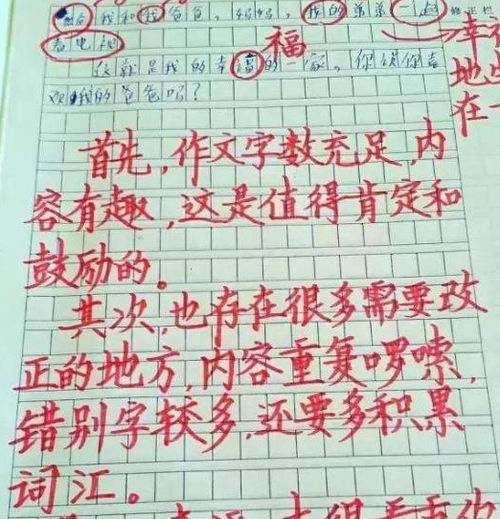 我和我爸爸，妈妈，我的弟弟一起
看电视
福
这就是我的幸富的一家，你说你喜
欢我的爸爸吗？
幸
地
在一
首先，作文字数充足，内
容有趣，这是值得肯定和
鼓励的。
其次，也存在很多需要改
正的地方，内容重复啰嗦，
错别字较多，还要多积累
词汇。